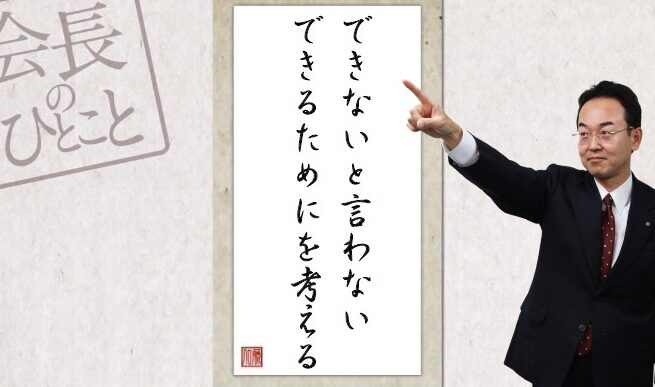 会長
の
ひとこと
できないと言わない
できるためにを考える